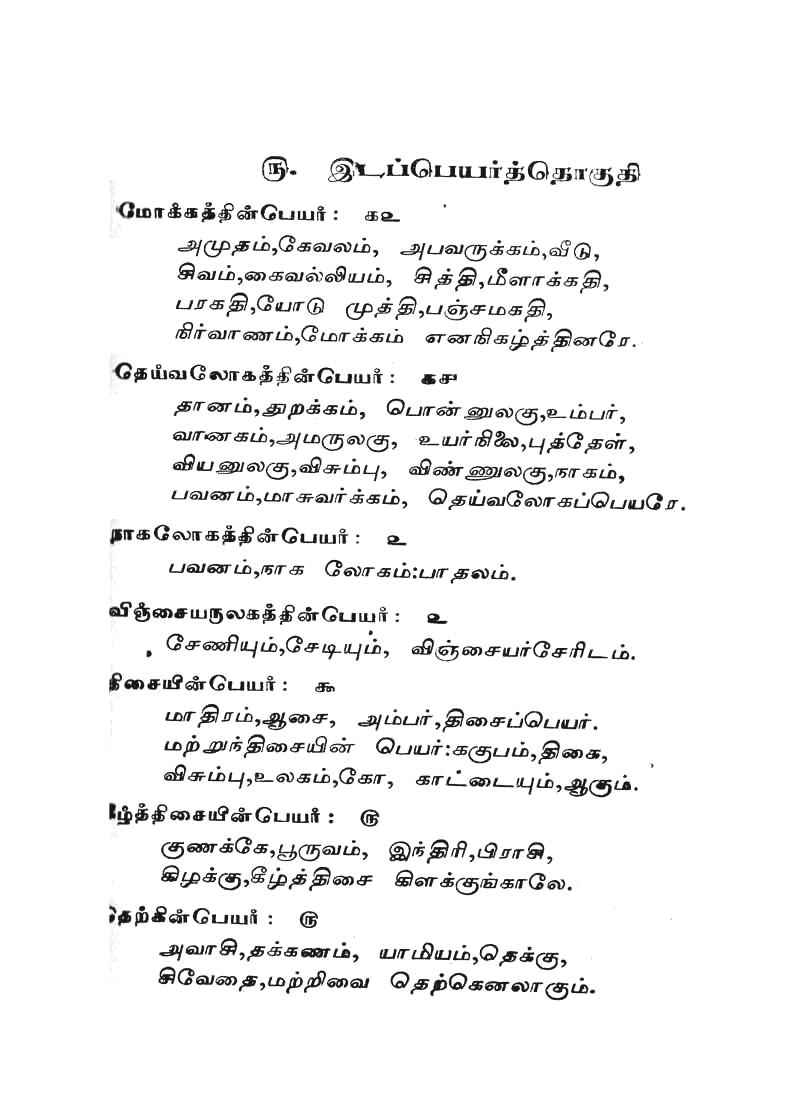 ௫. இடப்பெயர்த்தொகுதி
மோக்கத்தின்பெயர் : ௧௨
அமுதம்,கேவலம், அபவருக்கம்,வீடு,
சிவம்,கைவல்லியம், சித்தி,மீளாக்கதி,
பரகதி,யோடு முத்தி,பஞ்சமகதி,
நிர்வாணம்,மோக்கம் எனநிகழ்த்தினரே.
தெய்வலோகத்தின்பெயர் : ௧௪
தானம்,துறக்கம், பொன்னுலகு,உம்பர்,
வானகம்,அமருலகு, உயர்நிலை,புத்தேள்,
வியனுலகு,விசும்பு, விண்ணுலகு,நாகம்,
பவனம்,மாசுவர்க்கம், தெய்வலோகப்பெயரே.
நாகலோகத்தின்பெயர் : ௨
பவனம்,நாக லோகம்:பாதலம்.
விஞ்சையருலகத்தின்பெயர் : ௨
சேணியும்,சேடியும், விஞ்சையர்சேரிடம்.
திசையின்பெயர் : ௯
மாதிரம்,ஆசை, அம்பர்,திசைப்பெயர்.
மற்றுந்திசையின் பெயர்:ககுபம்,திகை,
விசும்பு,உலகம்,கோ, காட்டையும்,ஆகும்.
கீழ்த்திசையின்பெயர் : ௫
குணக்கே,பூருவம், இந்திரி,பிராசி,
கிழக்கு,கீழ்த்திசை கிளக்குங்காலே.
தெற்கின்பெயர் : ௫
அவாசி,தக்கணம், யாமியம்,தெக்கு,
சிவேதை,மற்றிவை தெற்கெனலாகும்.